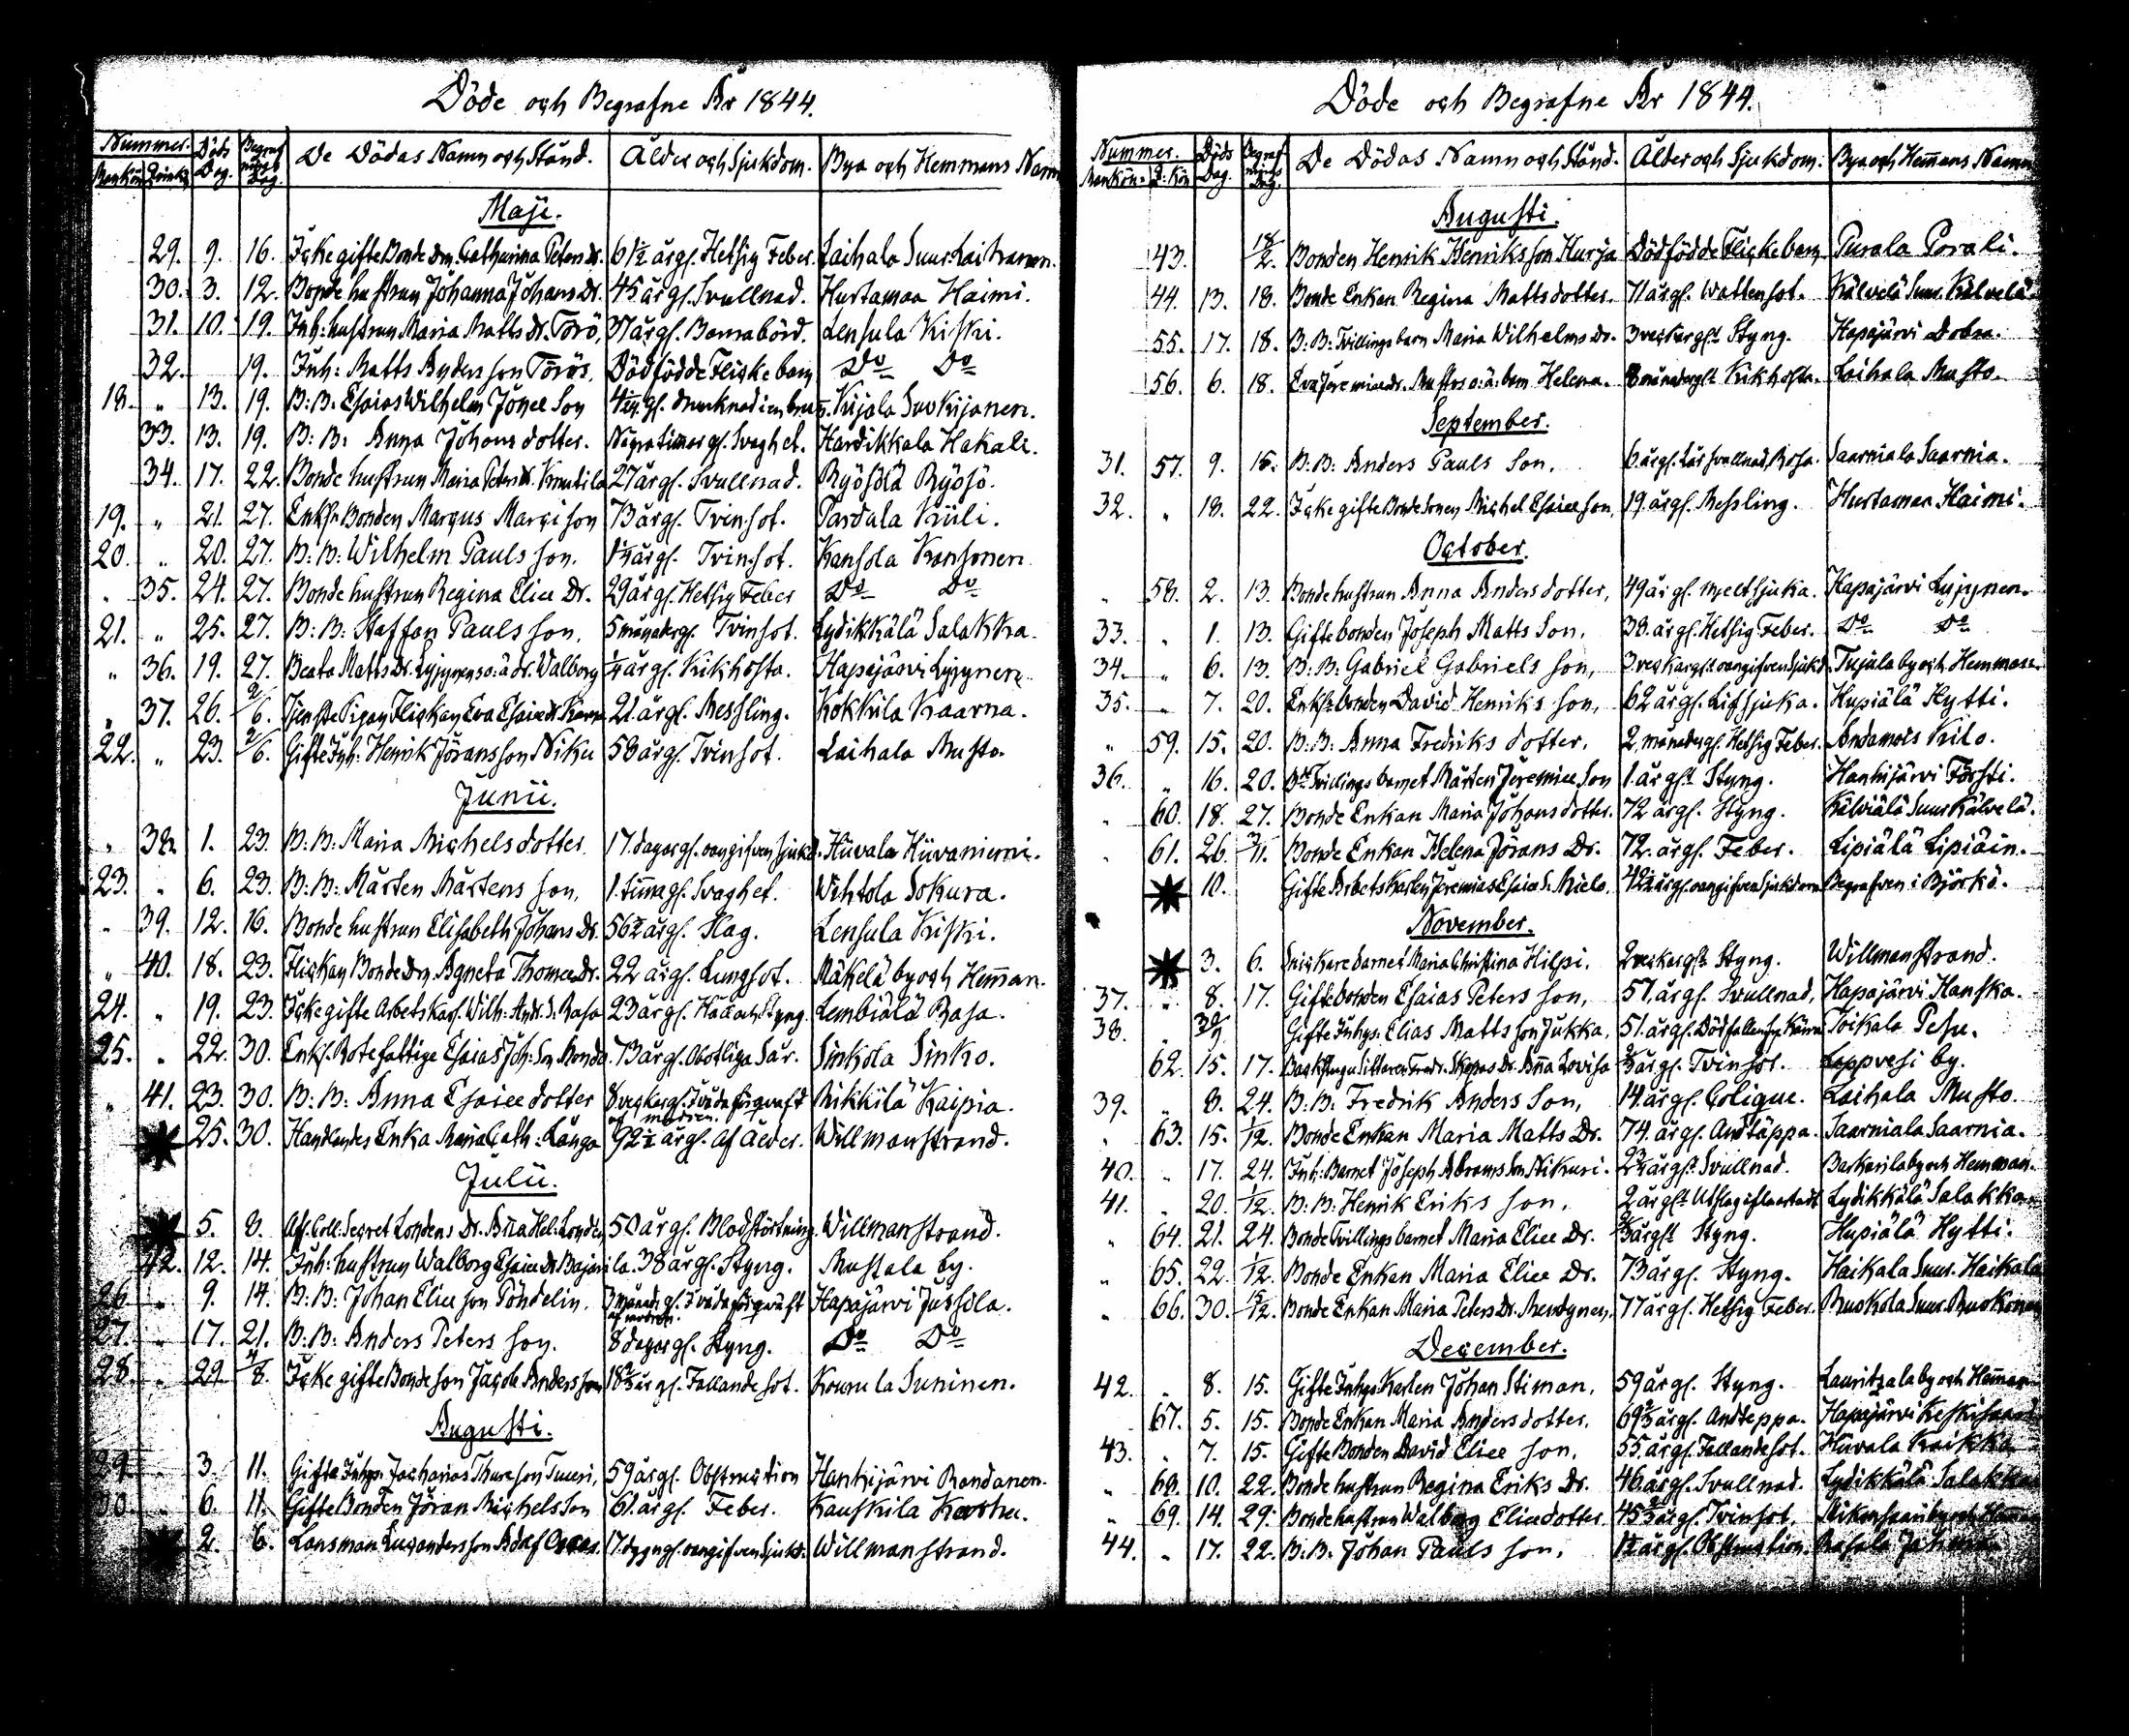 Döde och Begrafne År 1844.
Nummer. Döds Dag. Begrafnings Dag. De Dödas Namn och Stånd. Ålder och Sjukdom. Bya och Hemmans Namn
Mankön Qvinkö
Maji.
29. 9. 16. Icke gifte Bonde dm. Catharina Peters dr. 61½ årgl. Hetsig Feber. Laihala Suur Laihanen.
30. 3. 12. Bonde hustrun Johanna Johans Dr. 45 årgl. Svullnad. Hurtamaa Haimi.
31. 10. 19. Inh: hustrun Maria Matts Dr. Törö, 37 årgl. Barnsbörd. Lensula Kiski.
32. 19. Inh: Matts Andersson Törös, Dödfödde Flickebarn Do Do
18. „ 13. 19. B: B. Esaias Wilhelm Jönee Son Kijala Suokijanen.
33. 13. 19. B: B: Anna Johans dotter. Några timar gl. Svaghet. Hardikkala Hakali.
34. 17. 22. Bonde hustrun Maria Peters Dr. Knutila 27 årgl. Svullnad. Ryösölä Ryösö.
19. „ 21. 27. Enkl. Bonden Marcus Marci son 73 årgl. Tvinsot. Pardala Kiili.
20. „ 20. 27. B: B: Wilhelm Pauls son. 1¼ årgl. Tvinsot. Kansola Kansonen
„ 35. 24. 27. Bonde hustrun Regina Eliæ Dr. 29 årgl. Hetsig Feber Do Do
21. „ 25. 27. B: B: Staffan Pauls son, 5 månadergl. Tvinsot. Lydikkälä Salakka.
„ 36. 19. 27. Beata Matts Dr. Lyjynens o: ä dr. Walborg ¼ årgl. Kikhosta. Hapajärvi Lyjynen.
„ 37. 26. 2/6. Tjenste Pigan Flickan Eva Esaiæ dr Kaarna 21. årgl. Messling. Kokkila Kaarna.
22. „ 23. 2/6. Gifte Inh: Henrik Jöransson Niku 58 årgl. Tvinsot. Laihala Musto.
Junii.
„ 38. 1. 23. B: B: Maria Michels dotter. 17. dagargl. oangifven sjukd. Hüvala Hüvaniemi.
23. „ 6. 23. B: B: Mårten Mårtens son, 1. timagl. Svaghet. Wihtola Sokura.
„ 39. 12. 16. Bonde hustrun Elisabeth Johans Dr. 56½ årgl. Slag. Lensula Kiski.
„ 40. 18. 23. Flickan Bonde dm. Agneta Thomæ Dr. 22 årgl. Lungsot. Mäkelä by och Heman.
24. „ 19. 23. Icke gifte Arbets Karl. Wilh: And: S. Rasa 23 årgl. Håll och Styng. Lembiälä Rasa.
25. „ 22. 30. Enkl. Rotefattige Esaias Joh: Son Monda. 73 årgl. Obotliga Sår. Sinkola Sinko.
„ 41. 23. 30. B: B: Anna Esaiee dotter 8 veckorgl. Ihjäl förqväfd af modren. Mikkilä Kaipia.
25. 30. Handlandes Enka Maria Cath: Långa 92½ årgl. Af Ålder. Willmanstrand.
Julii.
5. 8. Aff. Coll: Secret Londens Dr. Anna Hel: Londén 50 årgl. Blodstörtning. Willmanstrand.
42. 12. 14. Inh: hustrun Walborg Esaiæ Dr. Bajarila. 38 årgl. Styng. Mustala by.
26. „ 9. 14. B: B: Johan Eliæ son Pöndelin, 3 månad. gl. förqväft af modren. Hapajärvi Jussila.
27. „ 17. 21. B: B: Anders Peters son. 8 dagargl. Styng. Do Do
28. „ 29. 4/8. Icke gifte Bonde son Jacob Andersson 18⅔ årgl. Fallande sot. Kounula Suninen.
Augusti.
29. 3. 11. Gifte Inhys. Zacharias Thureson Tuuri, 59 årgl. Obstruction Hanhijärvi Randanen.
30. 6. 11. Gifte Bonden Jöran Michels son 61. årgl. Feber. Kauskila Karhu.
2. 6. Lansman Lucandersson Adolf 17. dygngl. oangifven Sjukd. Willmanstrand.
Döde och Begrafne År 1844.
Nummer. Döds Dag. Begrafnings Dag. De Dödas Namn och Stånd. Ålder och Sjukdom. Bya och Hemans Namn
Mankön Q: Kön
Augusti.
43. 18/2. Bonden Henrik Henriksson Hurja Dödfödde Flickebarn Purala Porali.
44. 13. 18. Bonde Enkan Regina Mattsdotter. 71 årgl. Wattensot. Kälvelä Suur Kälvelä.
55. 17. 18. B: B: Tvillings barn Maria Wilhelms Dr. 3 veckorglt Styng. Hapajärvi Dobra.
56. 6. 18. Eva Jeremiædr. Mustos o: ä: barn Helena. 8 månadergl. Kikhosta. Laihala Musto.
September.
31. 57. 9. 15. B: B: Anders Pauls Son. 6. årgl. Lår svullnad, Rosa. Saarniala Saarnia.
32. „ 18. 22. Icke gifte Bonde Sonen Michel Esaiee son, 19. årgl. Messling. Hurtamaa Haimi.
October.
„ 58. 2. 13. Bonde hustrun Anna Anders dotter, 49 årgl. Mjeltsjuka. Hapajärvi Lyjynen.
33. „ 1. 13. Gifte bonden Joseph Matts Son. 38. årgl. Hetsig Feber. Do Do
34. „ 6. 13. B: B: Gabriel Gabriels son, 3 veckorglt oangifven Sjukd. Tujula by och Hemman.
35. „ 7. 20. Enkl. bonden David Henriks son, 62 årgl. Lifsjuka. Hupiälä Hytti.
„ 59. 15. 20. B: B: Anna Fredriks dotter, 2. månadergl. Hetsig Feber. Andamois Kilo.
36. „ 16. 20. Bde Tvillings barnet Mårten Jeremiee Son 1. årglt Styng. Hanhijärvi Försti.
„ 60. 18. 27. Bonde Enkan Maria Johans dotter. 72 årgl. Styng. Kälviälä Suur Kälvelä.
„ 61. 26. 3/11. Bonde Enkan Helena Jörans Dr. 72. årgl. Feber. Lipiälä Lipiäin.
10. Gifte Arbets Karlen Jeremias Esaiæ S. Mielo, 42½ årgl. oangifven Sjukdom Begrafven i Björkö.
November.
3. 6. Snickare barnet Maria Christina Hilpi. 2 veckorglt Styng. Willmanstrand.
37. „ 8. 17. Gifte bonden Esaias Peters son, 57. årgl. Svullnad, Hapajärvi Hanska.
38. Gifte Inhys. Elias Mattsson Jukka. 51. årgl. Toikala Pesu.
62. 15. 17. Backstugu Sittaren Fredr. Dr. Anna Lovisa ⅔ årgl. Tvinsot. Lappvesi by.
39. „ 8. 24. B: B: Fredrik Anders Son, 14. årgl. Colique. Laihala Musto.
„ 63. 15. 1/12. Bonde Enkan Maria Matts Dr. 74. årgl. Andtäppa. Saarniala Saarnia.
40. „ 17. 24. Inh: Barnet Joseph Abrams Son Nikuri. 2¾ årglt Svullnad. Barkarila by och Hemman.
41. „ 20. 1/12. B: B: Henrik Eriks son. 2 årglt Utslag Lydikkälä Salakka.
„ 64. 21. 24. Bonde Tvillings barnet Maria Eliee Dr. ⅔ årglt Styng. Hupiälä Hytti.
„ 65. 22. 1/12. Bonde Enkan Maria Eliee Dr. 73 årgl. Styng. Haikala Suur Haikala
„ 66. 30. 15/12. Bonde Enkan Maria Peters Dr. Mendynen, 77 årgl. Hetsig Feber. Ruokola Suur Ruokonen
December.
42. „ 8. 15. Gifte Inhys. Karlen Johan Stiman, 59 årgl. Styng. Lauritzala by och Heman
67. 5. 15. Bonde Enkan Maria Anders dotter. 69⅔ årgl. Andteppa. Hapajärvi Keskisaari
43. „ 7. 15. Gifte Bonden David Eliee son, 55 årgl. Fallandesot. Hüvala Kaikko
„ 68. 10. 22. Bonde hustrun Regina Eriks Dr. 46. årgl. Svullnad. Lydikkälä Salakka
„ 69. 14. 29. Bonde hustrun Walborg Eliædotter. 45⅔ årgl. Tvinsot. Nikonsaari by och Heman
44. „ 17. 22. B: B: Johan Pauls son, 1½ årgl. Obstruction. Rasala